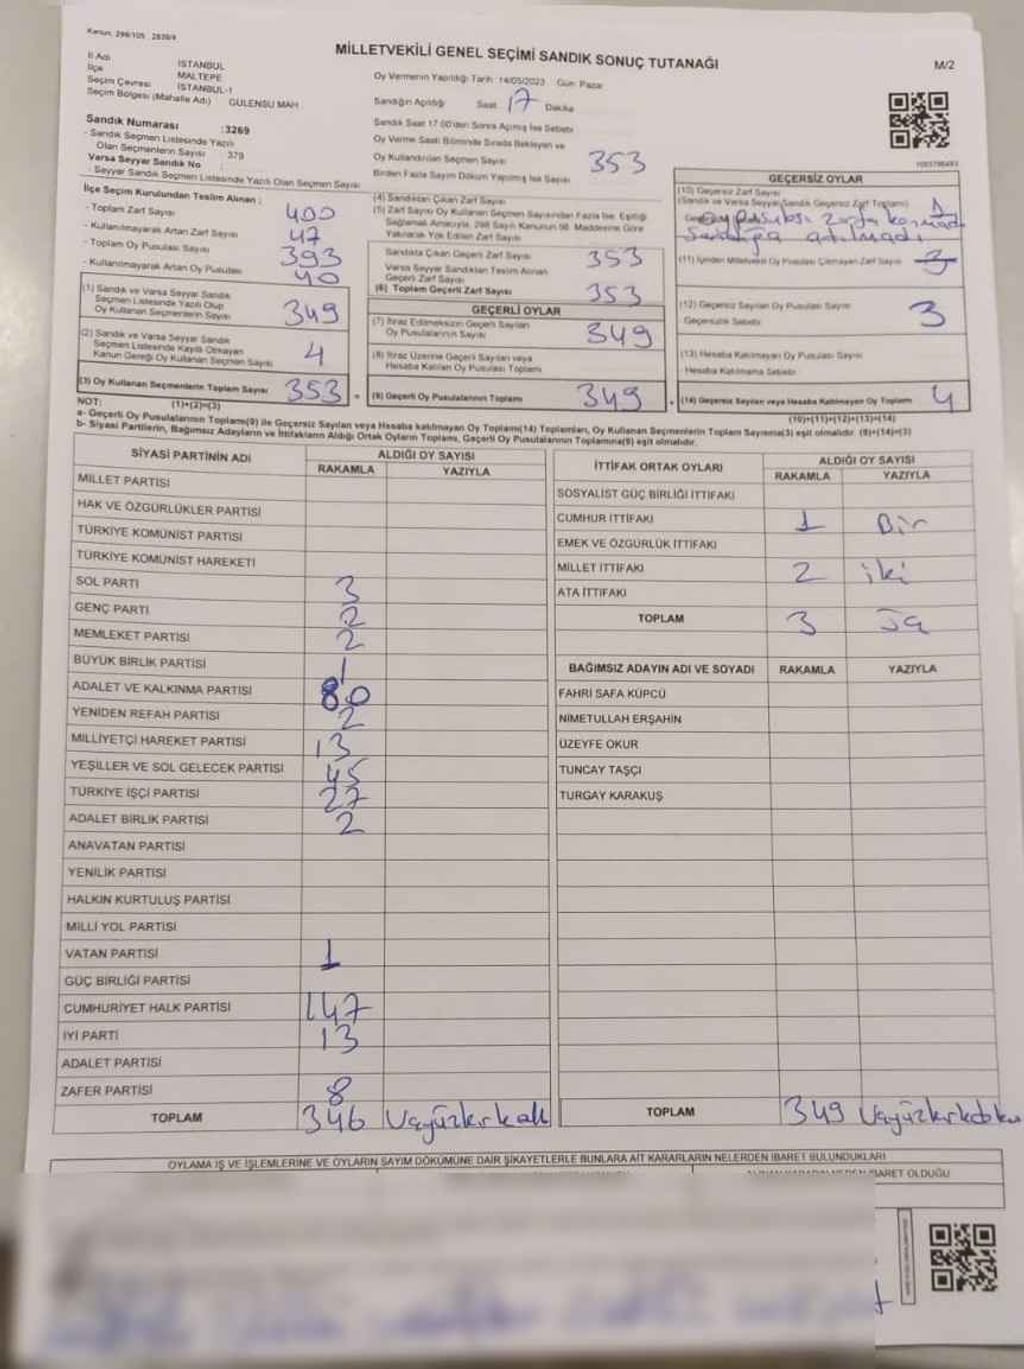 Kanun: 298/105 2839/9
MİLLETVEKİLİ GENEL SEÇİMİ SANDIK SONUÇ TUTANAĞI
M/2
İl Adı İSTANBUL
İlçe MALTEPE
Seçim Çevresi İSTANBUL-1
Seçim Bölgesi (Mahalle Adı) GÜLENSU MAH.
Oy Vermenin Yapıldığı Tarih :14/05/2023 Gün: Pazar
Sandığın Açıldığı Saat 17 Dakika
Sandık Saat 17.00'den Sonra Açılmış İse Sebebi
Oy Verme Saati Bitiminde Sırada Bekleyen ve
Oy Kullandırılan Seçmen Sayısı 353
Birden Fazla Sayım Döküm Yapılmış İse Sayısı
Sandık Numarası :3269
- Sandık Seçmen Listesinde Yazılı
Olan Seçmenlerin Sayısı : 379
Varsa Seyyar Sandık No :
- Seyyar Sandık Seçmen Listesinde Yazılı Olan Seçmen Sayısı
İlçe Seçim Kurulundan Teslim Alınan :
- Toplam Zarf Sayısı 400
- Kullanılmayarak Artan Zarf Sayısı 47
- Toplam Oy Pusulası Sayısı 393
- Kullanılmayarak Artan Oy Pusulası 40
(1) Sandık ve Varsa Seyyar Sandık
Seçmen Listesinde Yazılı Olup
Oy Kullanan Seçmenlerin Sayısı 349
(2) Sandık ve Varsa Seyyar Sandık
Seçmen Listesinde Kayıtlı Olmayan
Kanun Gereği Oy Kullanan Seçmen Sayısı 4
(3) Oy Kullanan Seçmenlerin Toplam Sayısı 353
(1)+(2)=(3)
(4) Sandıktan Çıkan Zarf Sayısı
(5) Zarf Sayısı Oy Kullanan Seçmen Sayısından Fazla İse, Eşitliği
Sağlamak Amacıyla, 298 Sayılı Kanunun 98. Maddesine Göre
Yakılarak Yok Edilen Zarf Sayısı
Sandıkta Çıkan Geçerli Zarf Sayısı 353
Varsa Seyyar Sandıktan Teslim Alınan
Geçerli Zarf Sayısı
(6) Toplam Geçerli Zarf Sayısı 353
GEÇERLİ OYLAR
(7) İtiraz Edilmeksizin Geçerli Sayılan
Oy Pusulalarının Sayısı 349
(8) İtiraz Üzerine Geçerli Sayılan veya
Hesaba Katılan Oy Pusulaları Toplamı
(9) Geçerli Oy Pusulalarının Toplamı 349
GEÇERSİZ OYLAR
(10) Geçersiz Zarf Sayısı
(Sandık ve Varsa Seyyar Sandık Geçersiz Zarf Toplamı) 1
Oy pusulası zarfa konmadı
sandığa atılmadı
(11) İçinden Milletvekili Oy Pusulası Çıkmayan Zarf Sayısı 3
(12) Geçersiz Sayılan Oy Pusulası Sayısı 3
Geçersizlik Sebebi
(13) Hesaba Katılmayan Oy Pusulası Sayısı
Hesaba Katılmama Sebebi
(14) Geçersiz Sayılan veya Hesaba Katılmayan Oy Toplamı 4
(10)+(11)+(12)+(13)=(14)
NOT:
a- Geçerli Oy Pusulalarının Toplamı(9) ile Geçersiz Sayılan veya Hesaba katılmayan Oy Toplamı(14) Toplamları, Oy Kullanan Seçmenlerin Toplam Sayısına(3) eşit olmalıdır. (9)+(14)=(3)
b- Siyasi Partilerin, Bağımsız Adayların ve İttifakların Aldığı Ortak Oyların Toplamı, Geçerli Oy Pusulalarının Toplamına(9) eşit olmalıdır.
SİYASİ PARTİNİN ADI ALDIĞI OY SAYISI
RAKAMLA YAZIYLA
MİLLET PARTİSİ
HAK VE ÖZGÜRLÜKLER PARTİSİ
TÜRKİYE KOMÜNİST PARTİSİ
TÜRKİYE KOMÜNİST HAREKETİ
SOL PARTİ 3
GENÇ PARTİ 2
MEMLEKET PARTİSİ 2
BÜYÜK BİRLİK PARTİSİ 1
ADALET VE KALKINMA PARTİSİ 80
YENİDEN REFAH PARTİSİ 2
MİLLİYETÇİ HAREKET PARTİSİ 13
YEŞİLLER VE SOL GELECEK PARTİSİ 45
TÜRKİYE İŞÇİ PARTİSİ 27
ADALET BİRLİK PARTİSİ 2
ANAVATAN PARTİSİ
YENİLİK PARTİSİ
HALKIN KURTULUŞ PARTİSİ
MİLLİ YOL PARTİSİ
VATAN PARTİSİ 1
GÜÇ BİRLİĞİ PARTİSİ
CUMHURİYET HALK PARTİSİ 147
İYİ PARTİ 13
ADALET PARTİSİ
ZAFER PARTİSİ 8
TOPLAM 346
İTTİFAK ORTAK OYLARI ALDIĞI OY SAYISI
RAKAMLA YAZIYLA
SOSYALİST GÜÇ BİRLİĞİ İTTİFAKI
CUMHUR İTTİFAKI 1 Bir
EMEK VE ÖZGÜRLÜK İTTİFAKI
MİLLET İTTİFAKI 2 iki
ATA İTTİFAKI
TOPLAM 3
BAĞIMSIZ ADAYIN ADI VE SOYADI RAKAMLA YAZIYLA
FAHRİ SAFA KÜPCÜ
NİMETULLAH ERŞAHİN
ÜZEYFE OKUR
TUNCAY TAŞÇI
TURGAY KARAKUŞ
TOPLAM 349
OYLAMA İŞ VE İŞLEMLERİNE VE OYLARIN SAYIM DÖKÜMÜNE DAİR ŞİKAYETLERLE BUNLARA AİT KARARLARIN NELERDEN İBARET BULUNDUKLARI
İBARET OLDUĞU